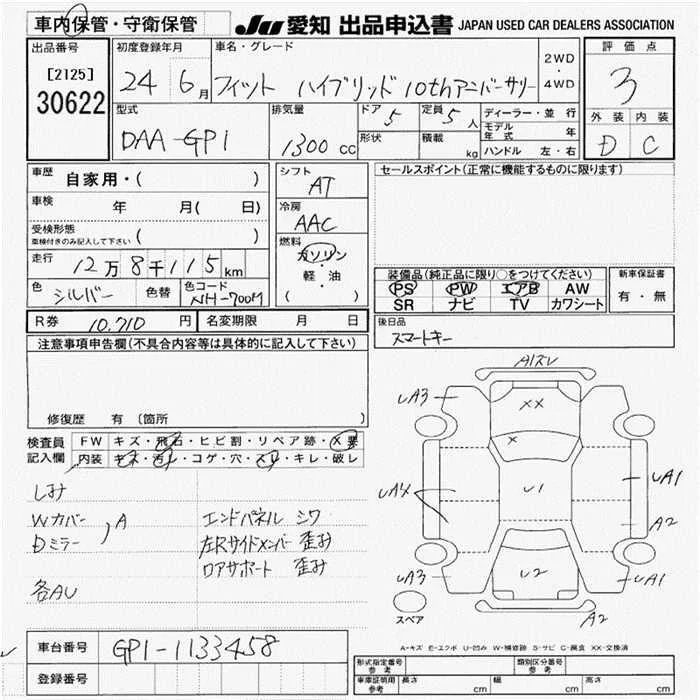 車内保管・守衛保管
JU 愛知 出品申込書 JAPAN USED CAR DEALERS ASSOCIATION
出品番号
[2125]
30622
初度登録年月
24 6月
車名・グレード
フィット ハイブリッド 10thアニバーサリー
2WD
・
4WD
評価点
3
外装 内装
D C
型式
DAA-GP1
排気量
1300 cc
ドア
5
形状
定員
5人
積載
kg
ディーラー・並行
モデル年式 年
ハンドル 左・右
車歴
自家用・( )
車検
年 月( 日)
受検形態
車検付きのみ記入して下さい ( )
走行
12万8千115km
色 シルバー 色替 色コード NH-700M
シフト
AT
冷房
AAC
燃料
ガソリン
・
軽・油
( )
セールスポイント(正常に機能するものに限ります)
装備品(純正品に限り○をつけてください)
PS PW エアB AW
SR ナビ TV カワシート
新車保証書
有・無
R券 10,710 円 名変期限 月 日
後日品
スマートキー
注意事項申告欄(不具合内容等は具体的に記入して下さい)
修復歴 有 (箇所
検査員記入欄
FW キズ・飛石・ヒビ割・リペア跡・X要
内装 キズ・汚レ・コゲ・穴・スレ・キレ・破レ
しみ
Wカバー , A
Dミラー
各AU
エンドパネル シワ
左Rサイドメンバー 歪み
ロアサポート 歪み
A1スレ
UA3
XX
X
UA4
U1
UA1
A2
UA3
U2
UA1
A2
スペア
A-キズ E-エクボ U-凹み W-補修跡 S-サビ C-腐食 XX-交換済
車台番号 GP1-1133458
登録番号
形式指定番号 参考
類別区分番号 参考
車庫証明用 参考 長さ cm 幅 cm 高さ cm